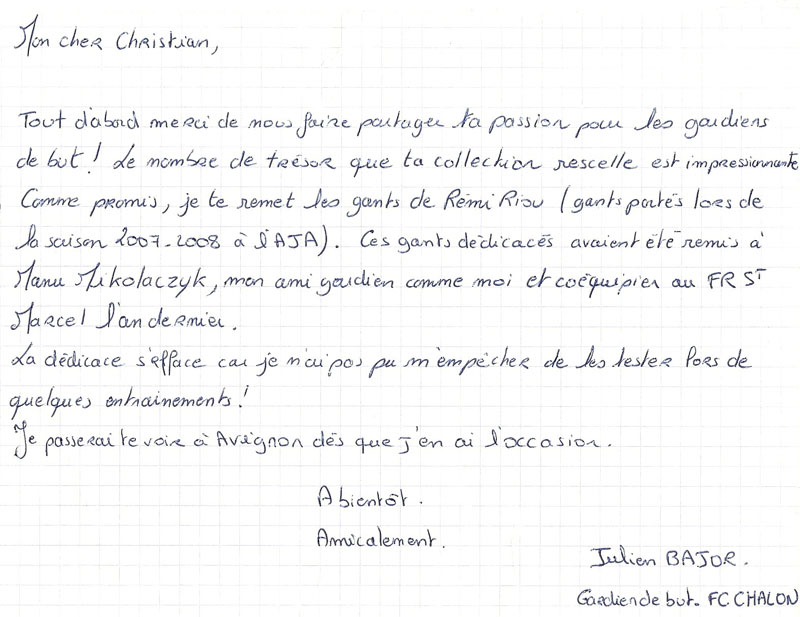 Mon cher Christian,
Tout d'abord merci de nous faire partager ta passion pour les gardiens
de but! Le nombre de trésor que ta collection rescelle est impressionnante
Comme promis, je te remet les gants de Rémi Riou (gants portés lors de
la saison 2007-2008 à l'AJA). Ces gants dédicacés avaient été remis à
Manu Mikolaczyk, mon ami gardien comme moi et coéquipier au FR ST
Marcel l'an dernier.
La dédicace s'efface car je n'ai pas pu m'empêcher de les tester lors de
quelques entrainements!
Je passerai te voir à Avignon dès que j'en ai l'occasion.
A bientôt.
Amicalement.
Julien BAJOR.
Gardien de but. FC CHALON